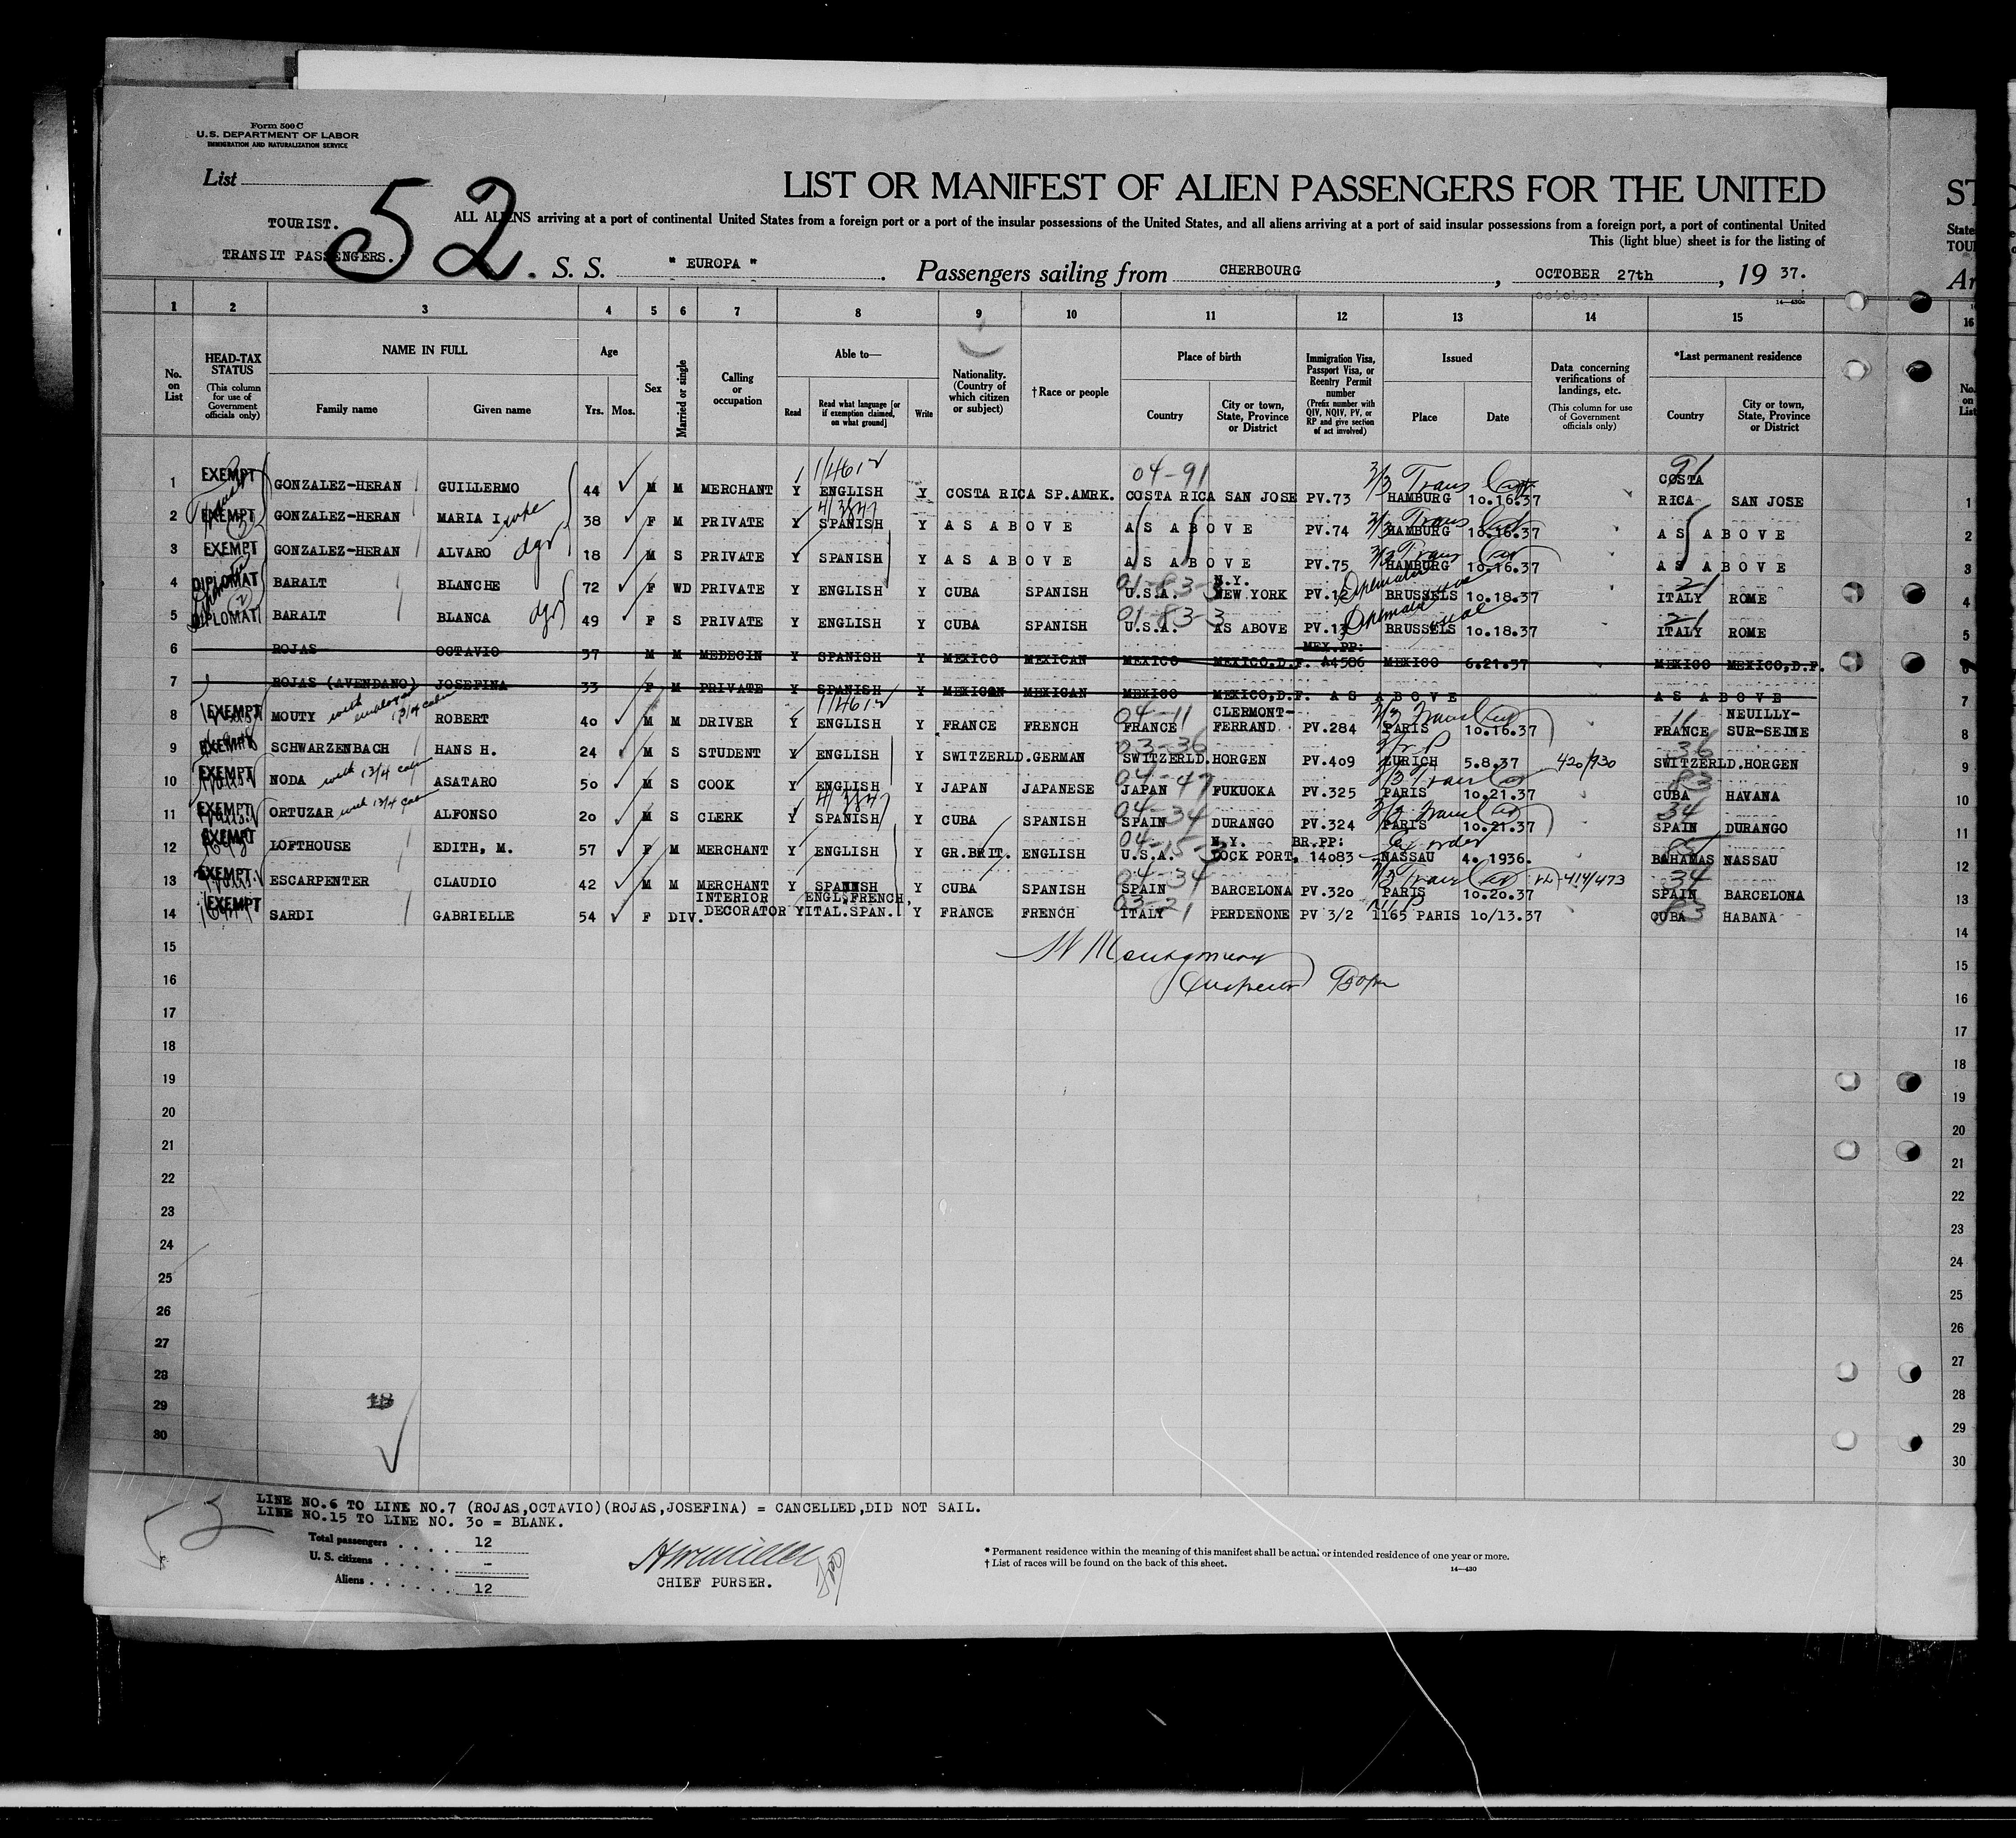 Form 500 C
U.S. DEPARTMENT OF LABOR
IMMIGRATION AND NATURALIZATION SERVICE
List
52
TOURIST.
TRANSIT PASSENGERS.
LIST OR MANIFEST OF ALIEN PASSENGERS FOR THE UNITED
ST
ALL ALIENS arriving at a port of continental United States from a foreign port or a port of the insular possessions of the United States, and all aliens arriving at a port of said insular possessions from a foreign port, a port of continental United
State
This (light blue) sheet is for the listing of
TOU
S. S. " EUROPA " Passengers sailing from CHERBOURG, OCTOBER 27th, 19 37.
Ar
14—430c
1 2 3 4 5 6 7 8 9 10 11 12 13 14 15 16
No. on List
HEAD-TAX STATUS (This column for use of Government officials only)
NAME IN FULL
Family name Given name
Age
Yrs. Mos.
Sex
Married or single
Calling or occupation
Able to—
Read
Read what language [or if exemption claimed, on what ground]
Write
Nationality. (Country of which citizen or subject)
†Race or people
Place of birth
Country
City or town, State, Province or District
Immigration Visa, Passport Visa, or Reentry Permit number (Prefix number with QIV, NQIV, PV, or RP and give section of act involved)
Issued
Place Date
Data concerning verifications of landings, etc. (This column for use of Government officials only)
*Last permanent residence
Country
City or town, State, Province or District
No. on List
04-91 91
1 EXEMPT GONZALEZ-HERAN GUILLERMO 44 M M MERCHANT Y ENGLISH Y COSTA RICA SP.AMRK. COSTA RICA SAN JOSE PV.73 HAMBURG 10.16.37 COSTA RICA SAN JOSE 1
2 EXEMPT GONZALEZ-HERAN MARIA I. wife 38 F M PRIVATE Y SPANISH Y AS ABOVE AS ABOVE PV.74 HAMBURG 10.16.37 AS ABOVE 2
3 EXEMPT GONZALEZ-HERAN ALVARO 18 M S PRIVATE Y SPANISH Y AS ABOVE AS ABOVE PV.75 HAMBURG 10.16.37 AS ABOVE 3
4 DIPLOMAT BARALT BLANCHE 72 F WD PRIVATE Y ENGLISH Y CUBA SPANISH U.S.A. N.Y. NEW YORK BRUSSELS 10.18.37 ITALY ROME 4
5 DIPLOMAT BARALT BLANCA 49 F S PRIVATE Y ENGLISH Y CUBA SPANISH U.S.A. AS ABOVE BRUSSELS 10.18.37 ITALY ROME 5
6 ROJAS OCTAVIO 37 M M MEDECIN Y SPANISH Y MEXICO MEXICAN MEXICO MEXICO,D.F. MEX.PP: A4586 MEXICO 6.21.37 MEXICO MEXICO,D.F.
7 ROJAS (AVENDANO) JOSEFINA 33 F M PRIVATE Y SPANISH Y MEXICAN MEXICAN MEXICO MEXICO,D.F. AS ABOVE AS ABOVE 7
8 EXEMPT MOUTY ROBERT 40 M M DRIVER Y ENGLISH Y FRANCE FRENCH 04-11 FRANCE CLERMONT-FERRAND PV.284 PARIS 10.16.37 11 FRANCE NEUILLY-SUR-SEINE 8
9 EXEMPT SCHWARZENBACH HANS H. 24 M S STUDENT Y ENGLISH Y SWITZERLD.GERMAN 03-36 SWITZERLD.HORGEN PV.409 ZURICH 5.8.37 420/930 36 SWITZERLD.HORGEN 9
10 EXEMPT NODA ASATARO 50 M S COOK Y ENGLISH Y JAPAN JAPANESE 04-47 JAPAN FUKUOKA PV.325 PARIS 10.21.37 83 CUBA HAVANA 10
11 EXEMPT ORTUZAR ALFONSO 20 M S CLERK Y SPANISH Y CUBA SPANISH 04-34 SPAIN DURANGO PV.324 PARIS 10.21.37 34 SPAIN DURANGO 11
12 EXEMPT LOFTHOUSE EDITH, M. 57 F M MERCHANT Y ENGLISH Y GR.BRIT. ENGLISH U.S.A. N.Y. LOCK PORT, BR.PP: 14083 NASSAU 4. 1936. BAHAMAS NASSAU 12
13 EXEMPT ESCARPENTER CLAUDIO 42 M M MERCHANT Y SPANISH Y CUBA SPANISH 04-34 SPAIN BARCELONA PV.320 PARIS 10.20.37 414/473 34 SPAIN BARCELONA 13
14 EXEMPT SARDI GABRIELLE 54 F DIV. INTERIOR DECORATOR Y ENGL,FRENCH, ITAL.SPAN. Y FRANCE FRENCH 03-21 ITALY PERDENONE PV 3/2 1165 PARIS 10/13.37 83 CUBA HABANA 14
15 15
Montgomery
16 Inspector 16
17 17
18 18
19 19
20 20
21 21
22 22
23 23
24 24
25 25
26 26
27 27
28 28
29 29
30 30
LINE NO.6 TO LINE NO.7 (ROJAS,OCTAVIO)(ROJAS,JOSEFINA) = CANCELLED,DID NOT SAIL.
LINE NO.15 TO LINE NO. 30 = BLANK.
Total passengers 12
U. S. citizens -
Aliens 12
CHIEF PURSER.
* Permanent residence within the meaning of this manifest shall be actual or intended residence of one year or more.
† List of races will be found on the back of this sheet.
14—430